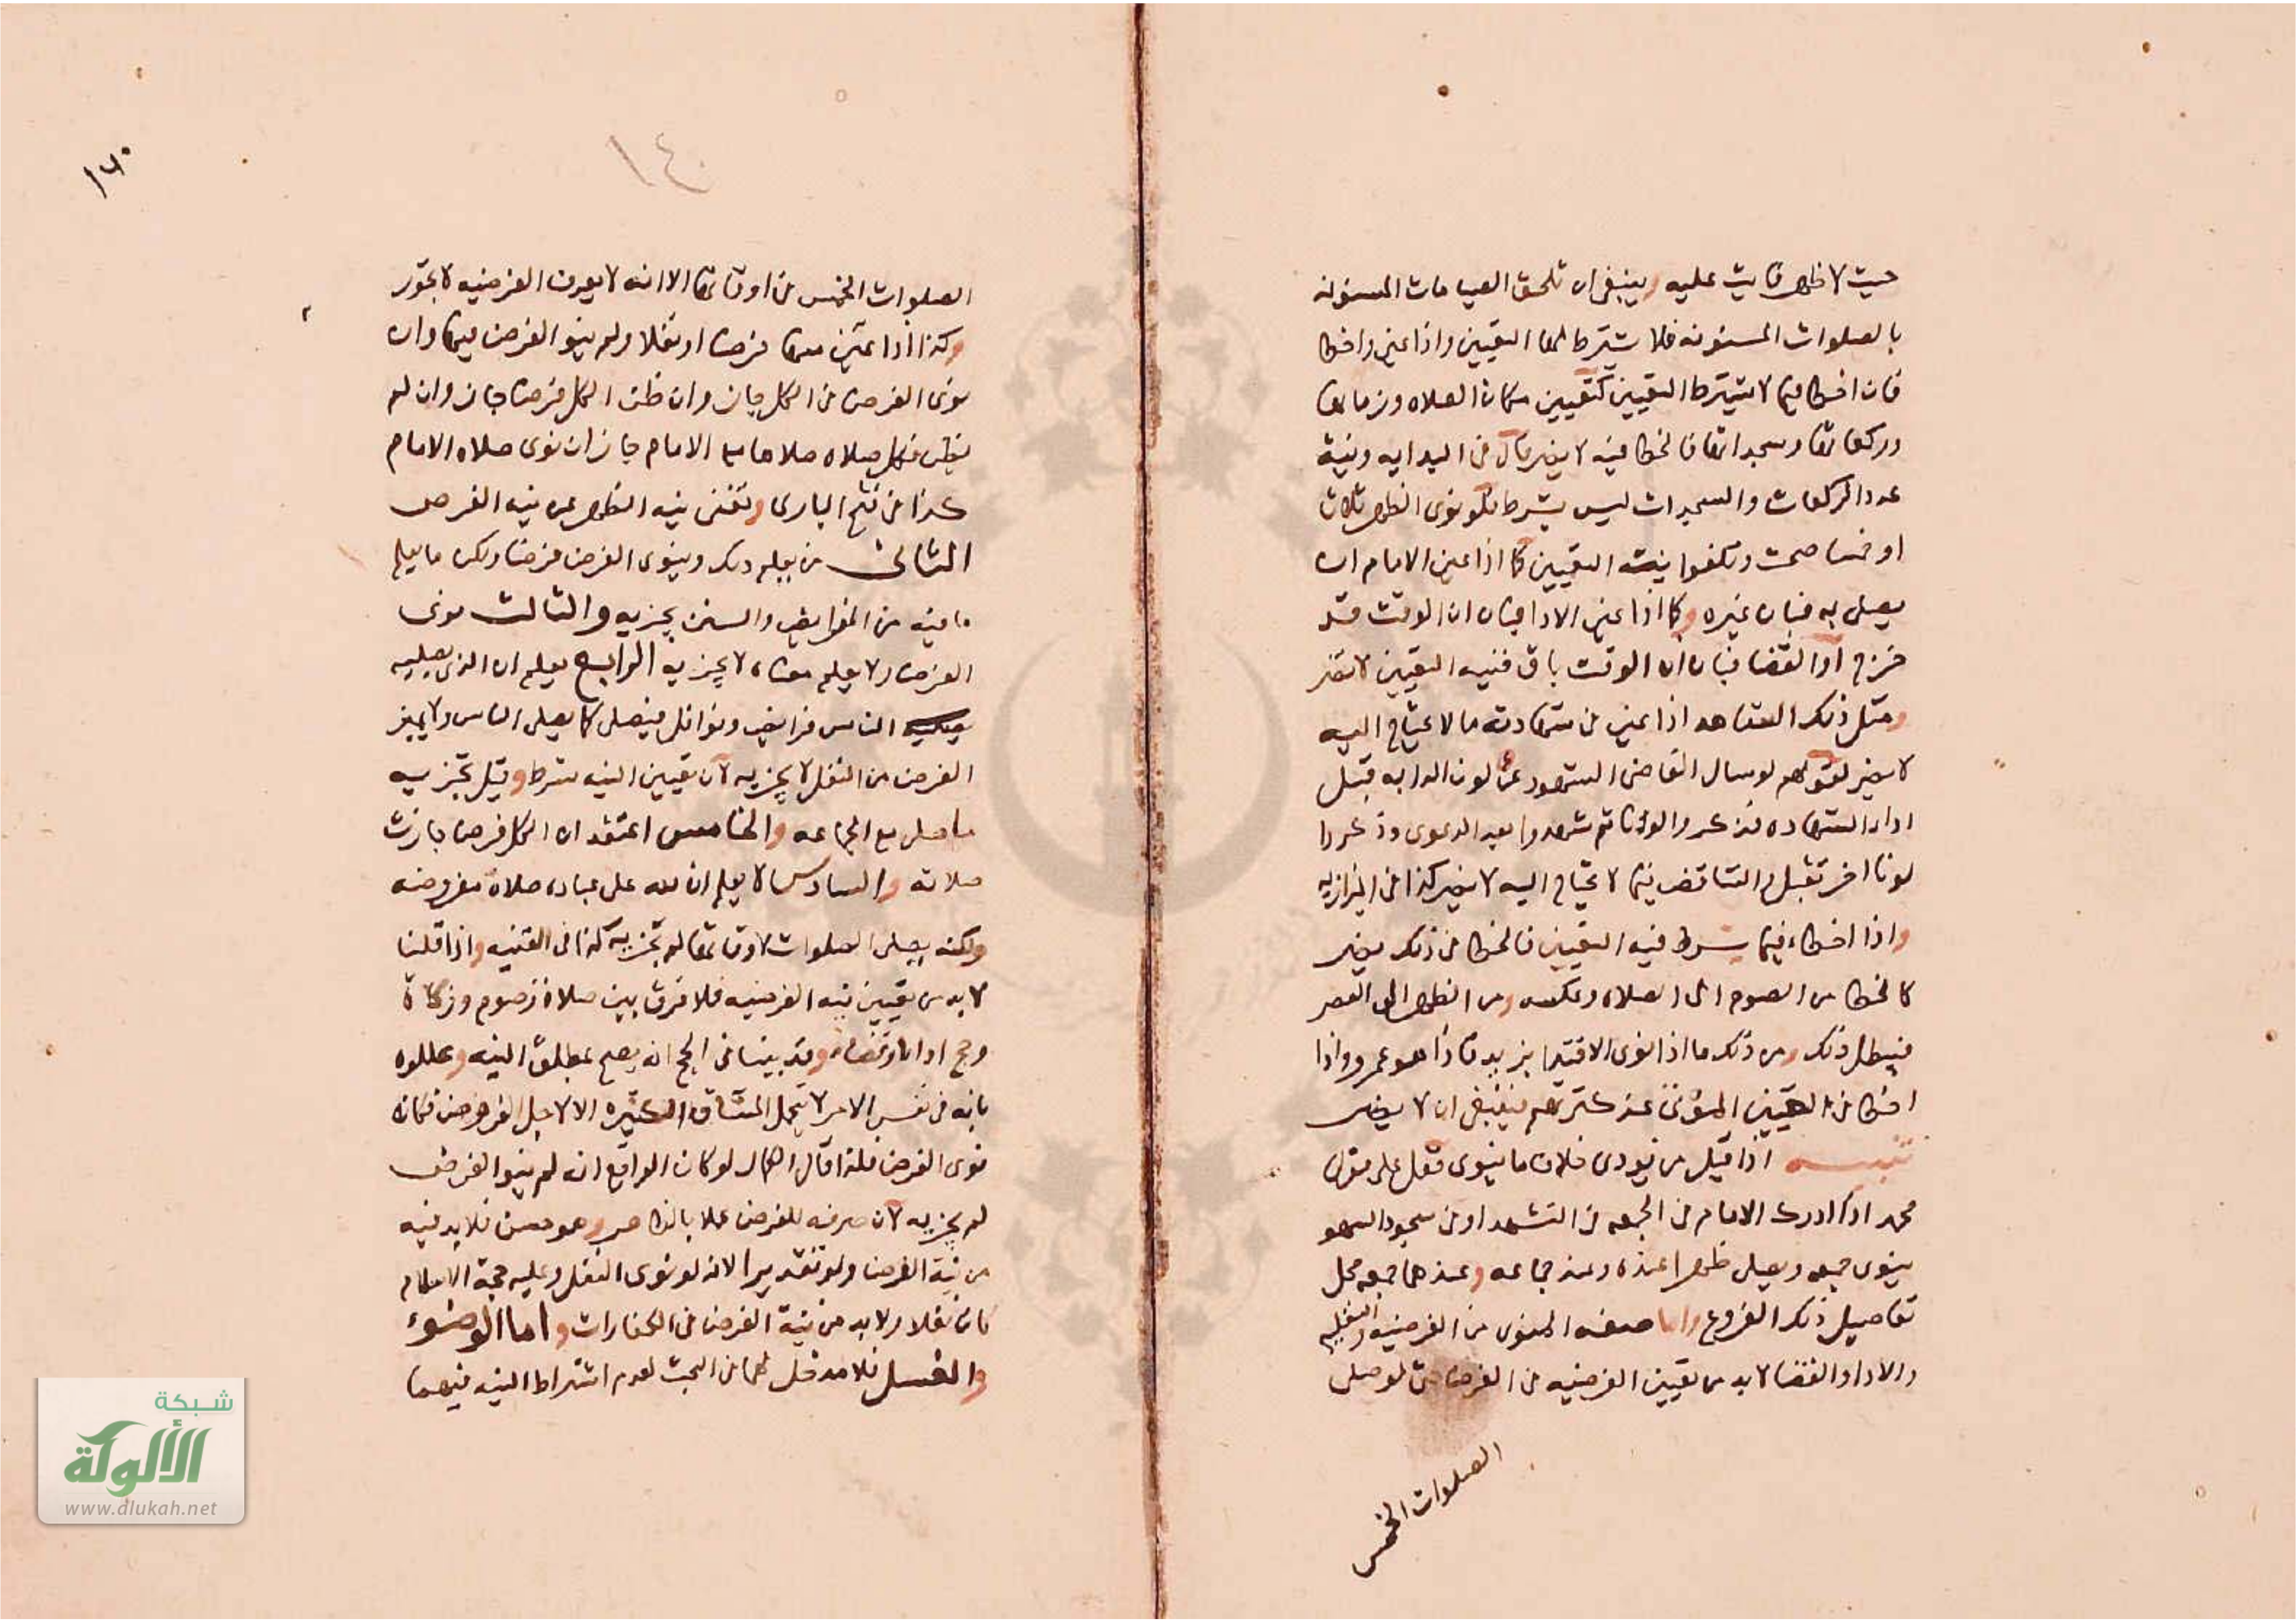 حيث لا ظهر فايت عليه وينبغى ان تلحق الصيامات المسنونه
بالصلوات المسنونه فلا يشترط لها التعيين واذا عين واخطا
فان اخطا فيما لا يشترط التعيين كتعيين مكان الصلاه وزمانها
وركعاتها وسجداتها فالخطا فيه لا يضر قال فى البدايه ونية
عدد الركعات والسجدات ليس بشرط فلو نوى الظهر ثلاثا
او خمسا صحت وتلغوا نيت التعيين كما اذا عين الامام ان
يصلى به فبان غيره وكما اذا عين الادا فبان ان الوقت قد
خرج او القضا فبان ان الوقت باق فنيه التعيين لا تضر
ومثل ذلك الشاهد اذا عين فى شهادته ما لا يحتاج اليه
لا يضر لقولهم لو سال القاضى الشهود عن لون الدابه قبل
اداء الشهاده فذكروا لونا ثم شهدوا بعد الدعوى وذكروا
لونا اخر تقبل والتناقض فيما لا يحتاج اليه لا يضر كذا فى البزازيه
واذا اخطاء فيما يشرط فيه التعيين فالخطا فى ذلك يضر
كالخطا من الصوم الى الصلاه وعكسه ومن الظهر الى العصر
فيبطل ذلك ومن ذلك ما اذا نوى الاقتدا بزيد فاذا هو عمرو واذا
اخطا فى تعيين الموتى عند كثرتهم فينبغى ان لا يضر
تنبيه اذا قيل من يودى خلاف ما ينوى فقل على قول
محمد اذا ادرك الامام فى الجمعه فى التشهد او فى سجود السهو
ينوى جمعه ويصلى ظهرا عنده وعندهما جمعه محل
تفاصيل ذلك الفروع واما صفه المنوى من الفرضيه والنفليه
والادا والقضا لا بد من تعيين الفرضيه فى الفرض حتى لو صلى
الصلوات الخمس
١٤٠
الصلوات الخمس فى اوقاتها الا انه لا يعرف الفرضيه لا تجوز
وكذا اذا علم ان منها فرضا او نفلا ولم ينو الفرض فيها وان
نوى الفرض فى الكل جاز وان ظن الكل فرضا جاز وان لم
يظن فكل صلاه صلاها مع الامام جاز ان نوى صلاه الامام
كذا فى فتح البارى وتغنى نيه الظهر عن نيه الفرض
الثانى من يعلم ذلك وينوى الفرض فرضا ولكن ما يعلم
ما فيه من الفرايض والسنن يجزيه والثالث نوى
الفرض ولا يعلم معناه لا يجزيه الرابع يعلم ان الذى يصليه
الناس فرايض ونوافل فيصلى كما يصلى الناس ولا يميز
الفرض من النفل لا يجزيه لان تعيين النيه شرط وقيل تجزيه
ما صلى مع الجماعه والخامس اعتقد ان الكل فرضا جازت
صلاته والسادس لا يعلم ان لله على عباده صلاه مفروضه
ولكنه يصلى الصلوات لاوقاتها لم تجزيه كذا فى القنيه واذا قلنا
لا بد من تعيين نيه الفرضيه فلا فرق بين صلاة وصوم وزكاة
وحج اداء وقضاء وقد بينا فى الحج انه يصح بمطلق النيه وعللوه
بانه فى نفس الامر لا يتحمل المشاق الكثيره الا لاجل الفرض فكانه
نوى الفرض فلذا قال الكمال لو كان الواقع انه لم ينو الفرض
لم يجزيه لان صرفه للفرض عملا بالظاهر وهو حسن فلا بد فيه
من نية الفرض ولو تقديرا لانه لو نوى النفل وعليه حجة الاسلام
كان نفلا ولا بد من نية الفرض فى الكفارات واما الوضوء
والغسل فلا مدخل لهما فى البحث لعدم اشتراط النيه فيهما
شبكة
الألوكة
www.alukah.net